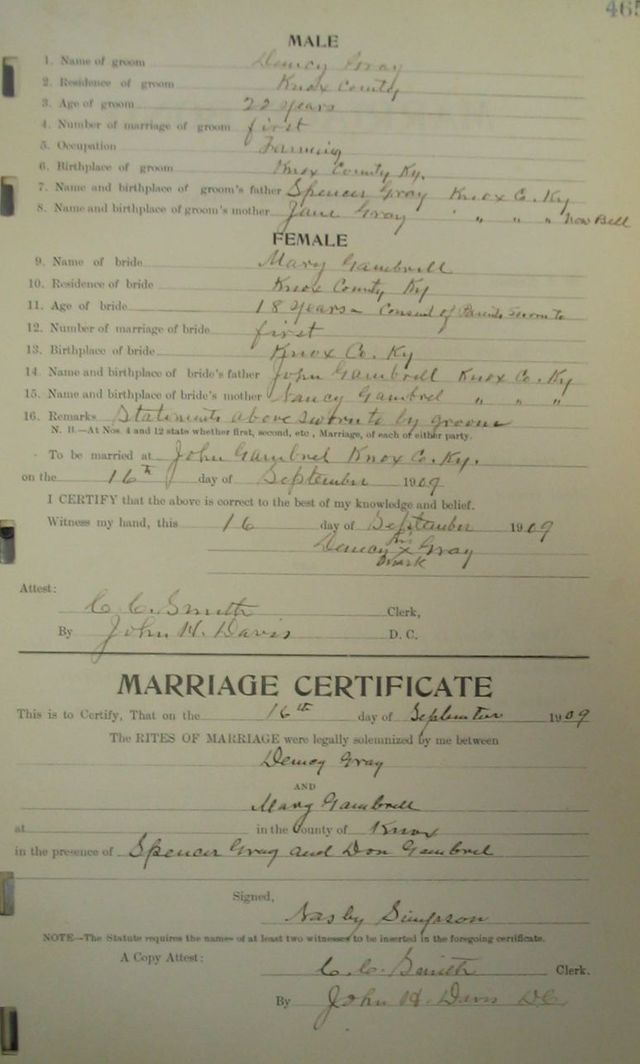 465
MALE
1. Name of groom Demcy Gray
2. Residence of groom Knox County
3. Age of groom 22 years
4. Number of marriage of groom first
5. Occupation Farming
6. Birthplace of groom Knox County Ky.
7. Name and birthplace of groom's father Spencer Gray Knox Co. Ky
8. Name and birthplace of groom's mother Jane Gray " " " " now Bell
FEMALE
9. Name of bride Mary Gambrell
10. Residence of bride Knox County Ky
11. Age of bride 18 years - Consent of Parents sworn to
12. Number of marriage of bride first
13. Birthplace of bride Knox Co. Ky
14. Name and birthplace of bride's father John Gambrell Knox Co. Ky
15. Name and birthplace of bride's mother Nancy Gambrel " " "
16. Remarks Statements above sworn to by groom
N. B.—At Nos. 4 and 12 state whether first, second, etc., Marriage, of each of either party.
To be married at John Gambrel Knox Co. Ky.
on the 16th day of September 1909
I CERTIFY that the above is correct to the best of my knowledge and belief.
Witness my hand, this 16 day of September 1909
his
Demcy x Gray
mark
Attest:
C. C. Smith Clerk,
By John H. Davis D. C.
MARRIAGE CERTIFICATE
This is to Certify, That on the 16th day of September 1909
The RITES OF MARRIAGE were legally solemnized by me between
Demcy Gray
AND
Mary Gambrell
at in the County of Knox
in the presence of Spencer Gray and Don Gambrel
Signed,
Nasby Simpson
NOTE—The Statute requires the names of at least two witnesses to be inserted in the foregoing certificate.
A Copy Attest:
C. C. Smith Clerk.
By John H. Davis DC